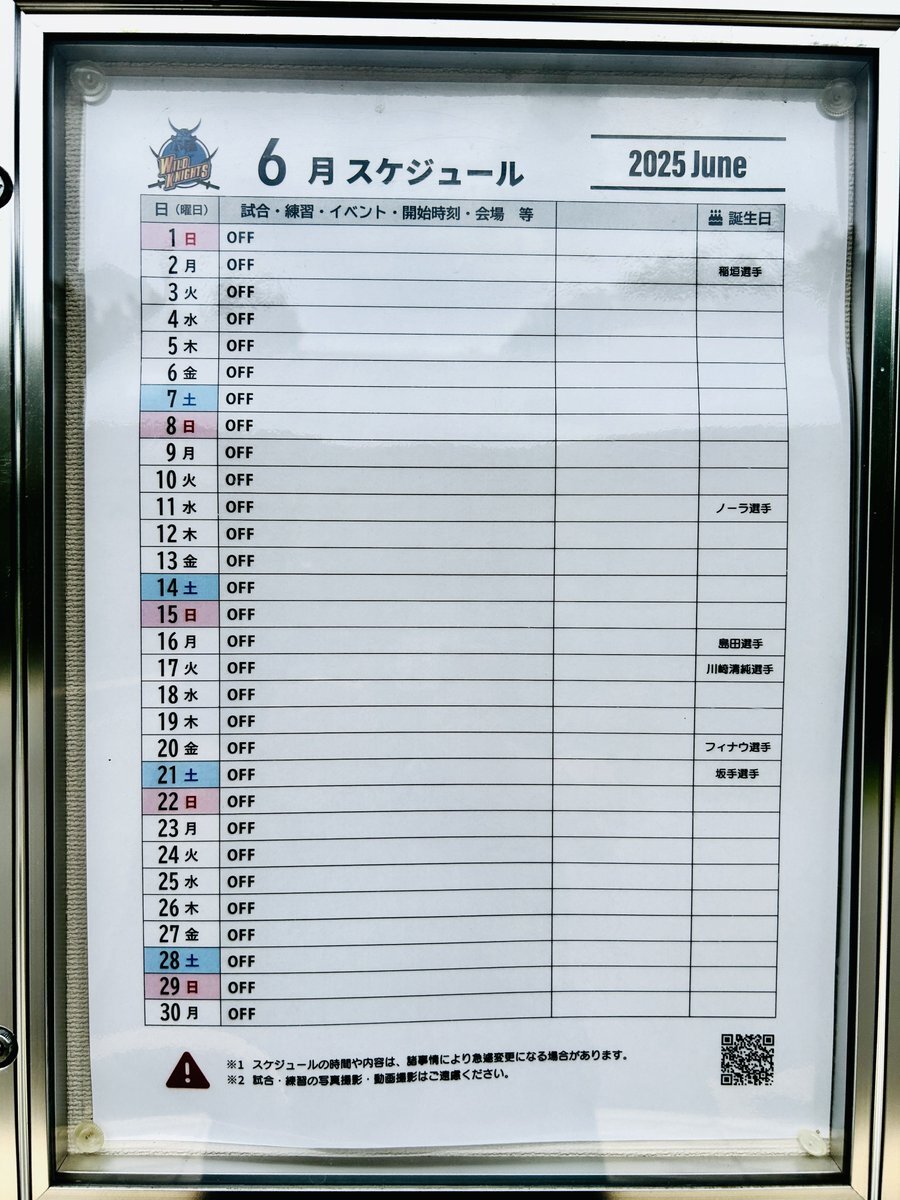 WILD KNIGHTS
6月スケジュール
2025 June
日(曜日) 試合・練習・イベント・開始時刻・会場 等 誕生日
1 日 OFF
2 月 OFF 稲垣選手
3 火 OFF
4 水 OFF
5 木 OFF
6 金 OFF
7 土 OFF
8 日 OFF
9 月 OFF
10 火 OFF
11 水 OFF ノーラ選手
12 木 OFF
13 金 OFF
14 土 OFF
15 日 OFF
16 月 OFF 島田選手
17 火 OFF 川﨑清純選手
18 水 OFF
19 木 OFF
20 金 OFF フィナウ選手
21 土 OFF 坂手選手
22 日 OFF
23 月 OFF
24 火 OFF
25 水 OFF
26 木 OFF
27 金 OFF
28 土 OFF
29 日 OFF
30 月 OFF
※1 スケジュールの時間や内容は、諸事情により急遽変更になる場合があります。
※2 試合・練習の写真撮影・動画撮影はご遠慮ください。